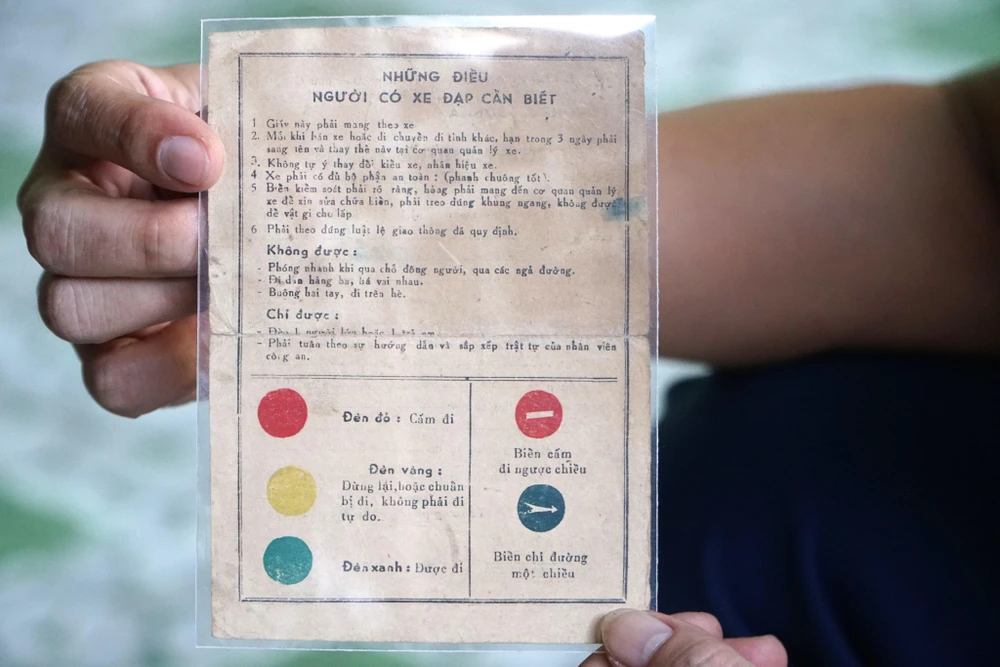 NHỮNG ĐIỀU
NGƯỜI CÓ XE ĐẠP CẦN BIẾT
1 Giấy này phải mang theo xe
2. Mỗi khi bán xe hoặc di chuyển đi tỉnh khác, hạn trong 3 ngày phải
sang tên và thay thẻ này tại cơ quan quản lý xe.
3. Không tự ý thay đổi kiểu xe, nhãn hiệu xe.
4 Xe phải có đủ bộ phận an toàn : (phanh chuông tốt).
5 Biển kiểm soát phải rõ ràng, hỏng phải mang đến cơ quan quản lý
xe để xin sửa chữa biển, phải treo đúng khung ngang, không được
để vật gì che lấp
6 Phải theo đúng luật lệ giao thông đã quy định.
Không được :
- Phóng nhanh khi qua chỗ đông người, qua các ngã đường.
- Đi dàn hàng ba, bá vai nhau.
- Buông hai tay, đi trên hè.
Chỉ được :
- Đèo 1 người lớn hoặc 1 trẻ em
- Phải tuân theo sự hướng dẫn và sắp xếp trật tự của nhân viên
công an.
Đèn đỏ : Cấm đi
Đèn vàng :
Dừng lại, hoặc chuẩn
bị đi, không phải đi
tự do.
Đèn xanh : Được đi
Biển cấm
đi ngược chiều
Biển chỉ đường
một chiều